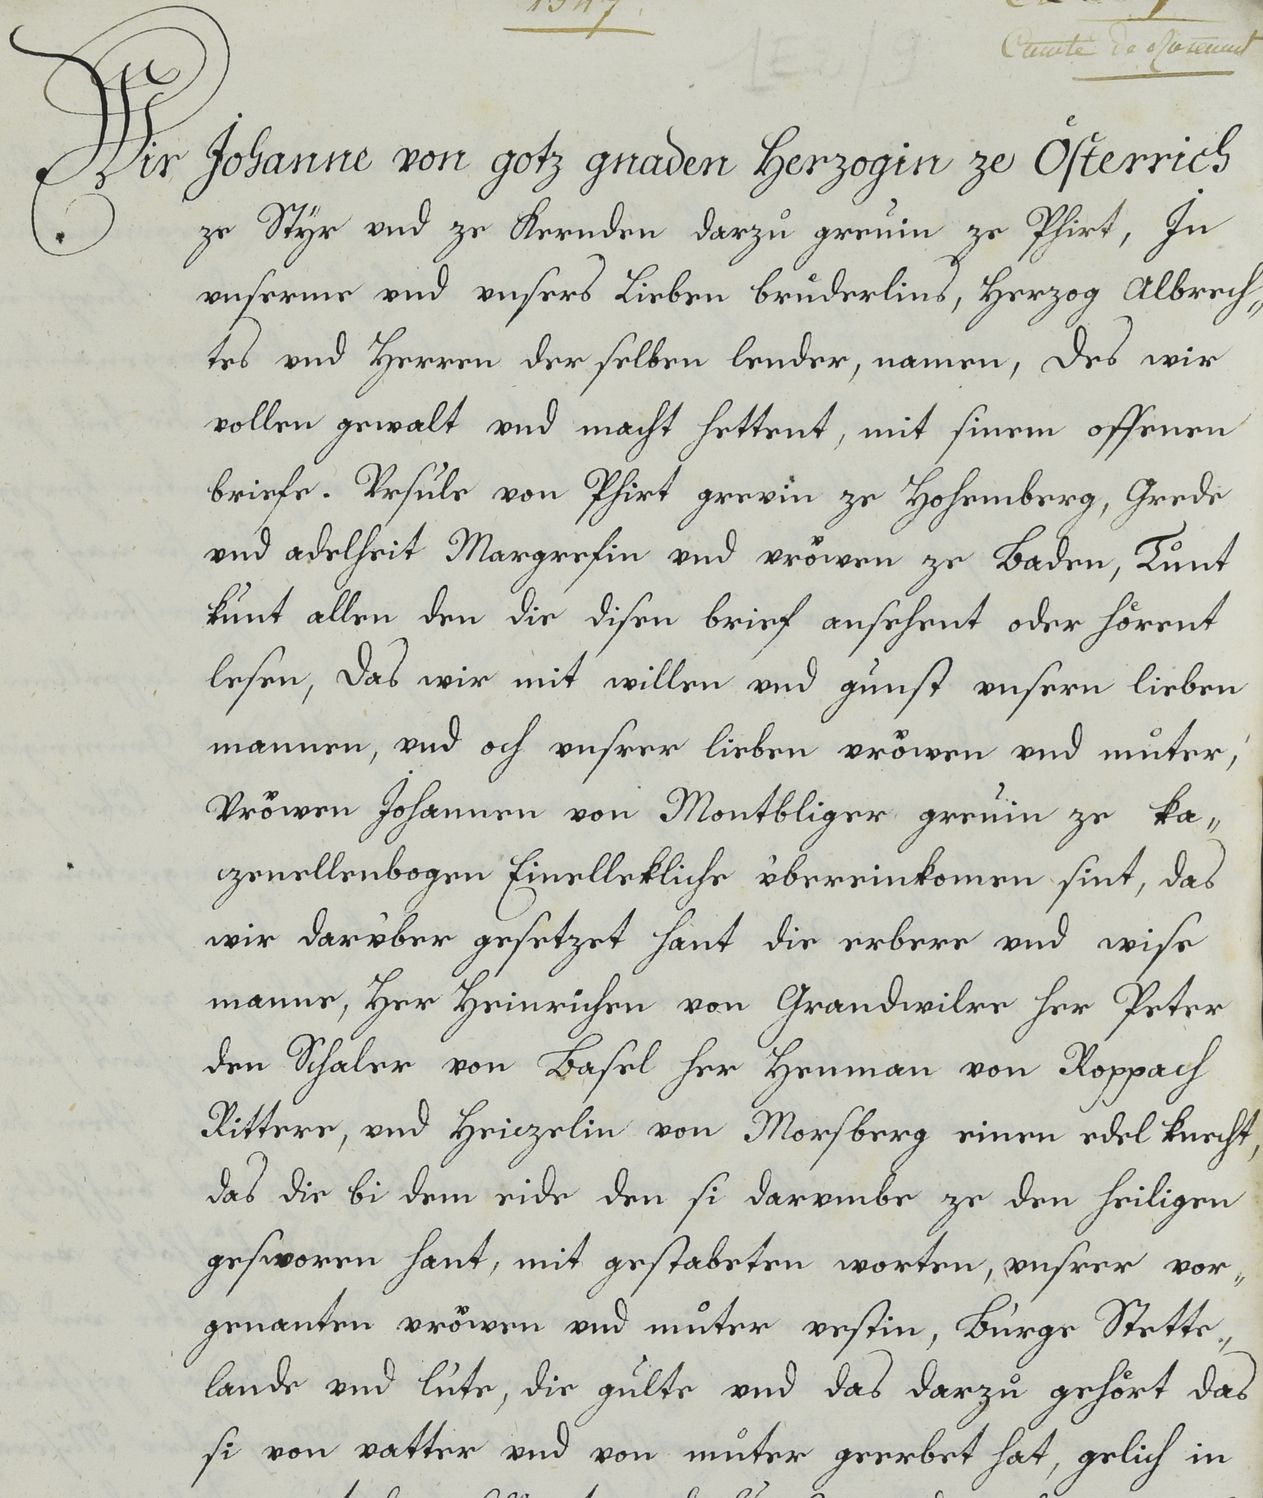 1347.
Comté de
Wir Johanne von gotz gnaden Herzogin ze Österrich
ze Styr vnd ze Kernden darzů greuin ze Phirt, In
vnserme vnd vnsers Lieben bruderlins, Herzog Albrech„
tes vnd Herren der selben lender, namen, Des wir
vollen gewalt vnd macht hettent, mit sinem offenen
briefe. Vrsule von Phirt grevin ze Hohemberg, Grede
vnd adelheit Margrefin vnd vröwen ze Baden, Tůnt
kunt allen den die disen brief ansehent oder hörent
lesen, Das wir mit willen vnd gunst vnsern lieben
mannen, vnd och vnsrer lieben vröwen vnd můter,
Vröwen Johannen von Montbliger greuin ze ka„
zenellenbogen Einellekliche vbereinkomen sint, das
wir darvber gesetzet hant die erbere vnd wise
manne, Her Heinrichen von Grandwilre her Peter
den Schaler von Basel her Henman von Roppach
Rittere, vnd Heiczelin von Morsberg einen edel knecht,
das die bi dem eide den si darvmbe ze den heiligen
gesworen hant, mit gestabeten worten, vnsrer vor„
genanten vröwen vnd můter vestin, Bůrge Stette„
lande vnd lute, die gulte vnd das darzů gehört das
si von vatter vnd von můter geerbet hat, gelich in